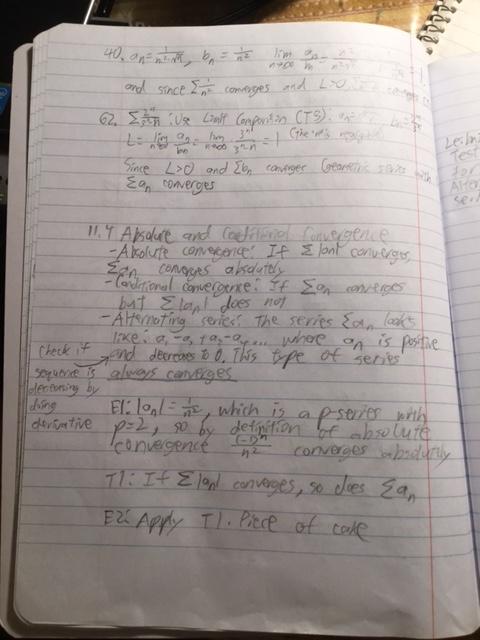 40. aₙ = 1/(n²-√n), bₙ = 1/n² lim n→∞ aₙ/bₙ = n²
and since Σ 1/n² converges and L>0
62. Σ 2ⁿ/(3ⁿ-n): Use Limit Comparison (TS).
L = lim n→∞ aₙ/bₙ = lim n→∞ 3ⁿ/(3ⁿ-n) = 1
Since L>0 and Σbₙ converges (geometric series with
Σaₙ converges
11.4 Absolute and Conditional Convergence
- Absolute convergence: If Σ|aₙ| converges,
Σaₙ converges absolutely
- Conditional convergence: If Σaₙ converges
but Σ|aₙ| does not
- Alternating series: The series Σaₙ looks
like: a₁-a₂+a₃-a₄... where aₙ is positive
and decreases to 0. This type of series
always converges
check if
sequence is
decreasing by
doing
derivative
E1: |aₙ| = 1/n², which is a p-series with
p=2, so by definition of absolute
convergence (-1)ⁿ/n² converges absolutely
T1: If Σ|aₙ| converges, so does Σaₙ
E2: Apply T1. Piece of cake
Test
for